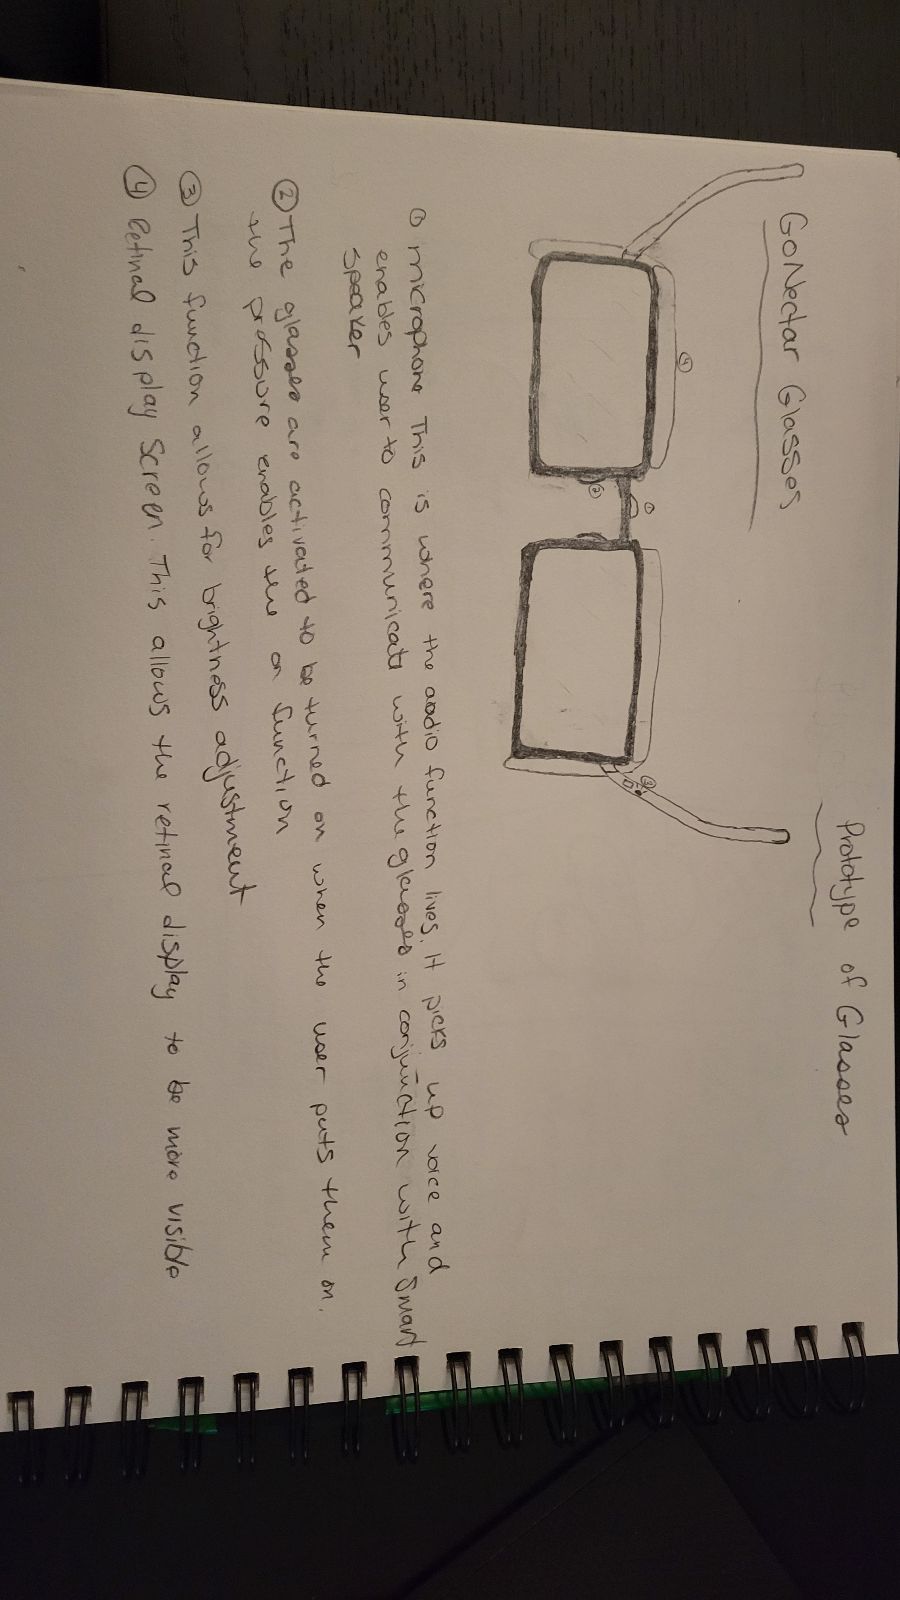 Prototype of Glasses
GoNectar Glasses
④
①
③
②
① microphone This is where the aodio function lives. It picks up voice and
enables user to communicate with the glasses in conjunction with Smart
speaker
② The glasses are activated to be turned on when the user puts them on.
the pressure enables the on function
③ This function allows for brightness adjustment
④ Retinal display Screen. This allows the retinal display to be more visible